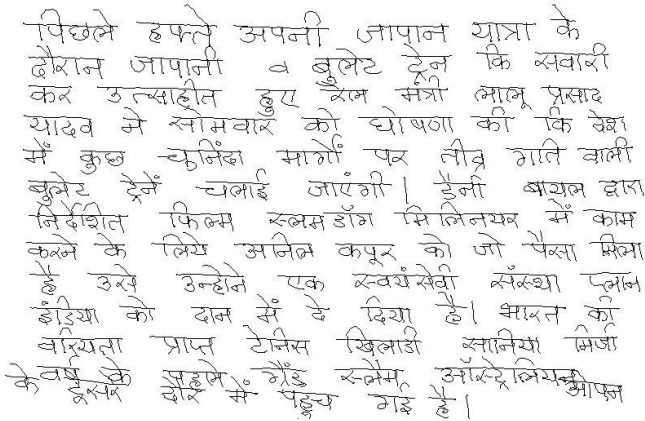 पिछले हफ्ते अपनी जापान यात्रा के
दौरान जापानी व बुलेट ट्रेन कि सवारी
कर उत्साहीत हुए रेल मंत्री लालू प्रसाद
यादव ने सोमवार को घोषणा की कि देश
में कुछ चुनिंदा मार्गों पर तीव्र गति वाली
बुलेट ट्रेनें चलाई जाएंगी। डैनी बायल द्वारा
निर्देशित फिल्म स्लमडॉग मिलिनयर में काम
करने के लिये अनिल कपूर को जो पैसा मिला
है उसे उन्होने एक स्वयंसेवी संस्था प्लान
इंडिया को दान में दे दिया है। भारत की
वरियता प्राप्त टेनिस खिलाडी सानिया मिर्जा
वर्ष के पहले ग्रैंड स्लैम ऑस्ट्रेलियन ओपन
के दूसरे दौर में पहुच गई है।